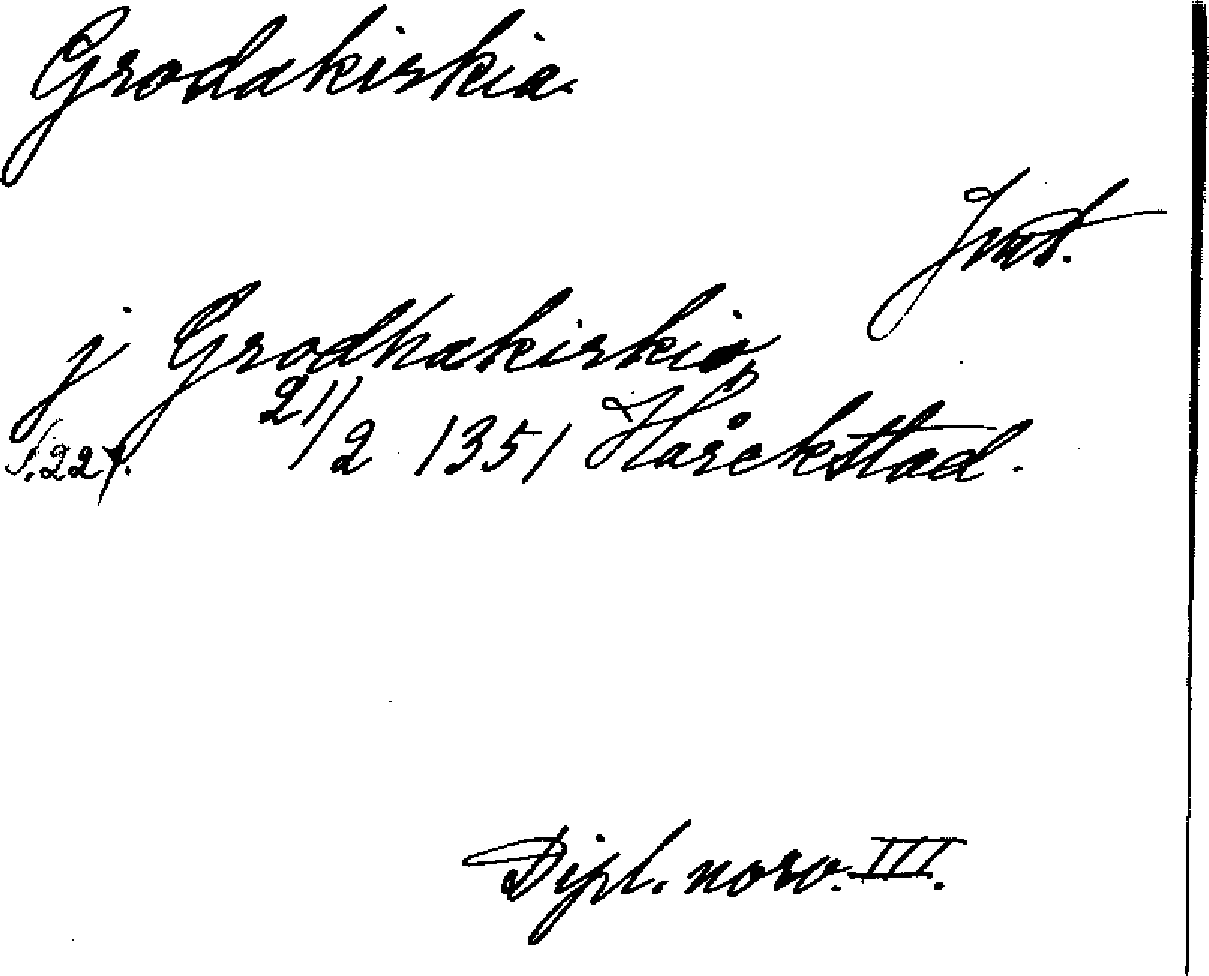 Grodakirkia.
Jmt.
j Grodhakirkio,
S. 227. 21/2 1351 Hårckstad.
Dipl. norv. III.